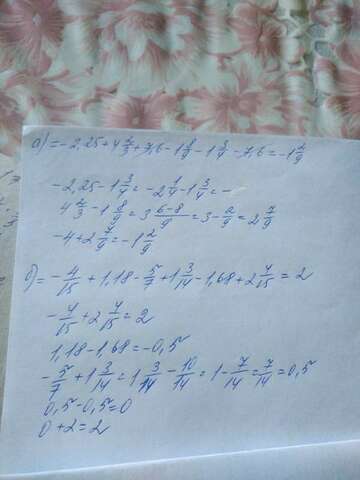 а) = -2,25 + 4 2/3 + 7,6 - 1 8/9 - 1 3/4 - 7,6 = -1 2/9
-2,25 - 1 3/4 = -2 1/4 - 1 3/4 = -
4 2/3 - 1 8/9 = 3 (6-8)/9 = 3 - 2/9 = 2 7/9
-4 + 2 7/9 = -1 2/9
б) = -4/15 + 1,18 - 5/7 + 1 3/14 - 1,68 + 2 4/15 = 2
-4/15 + 2 4/15 = 2
1,18 - 1,68 = -0,5
-5/7 + 1 3/14 = 1 3/14 - 10/14 = 1 - 7/14 = 7/14 = 0,5
0,5 - 0,5 = 0
0 + 2 = 2